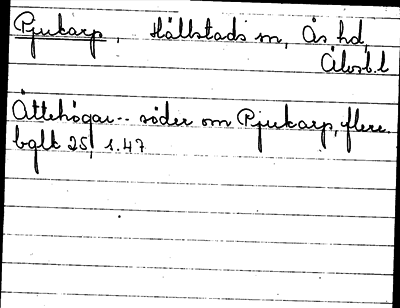 Pjukarp, Hällstads sn, Ås hd,
Älvsb.l
Ättehögar -- söder om Pjukarp, flere.
bglt 25, s.47